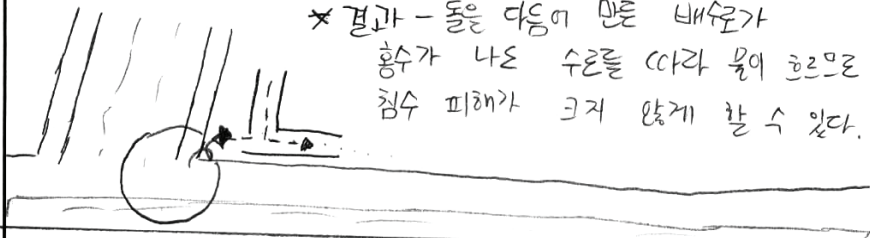 * 결과 - 돌을 다듬어 만든 배수로가
홍수가 나도 수로를 따라 물이 흐르므로
침수 피해가 크지 않게 할 수 있다.